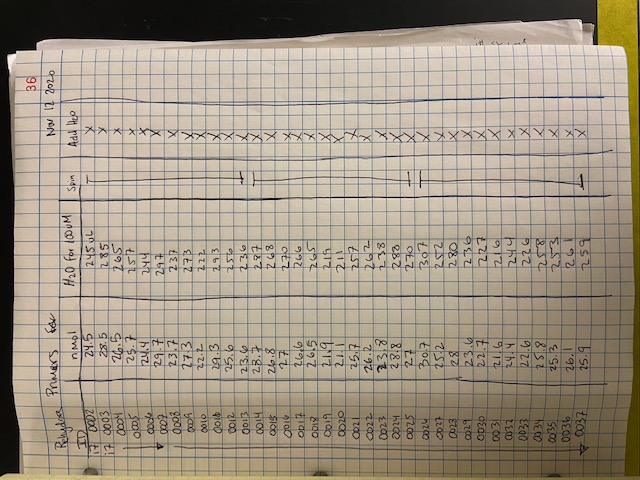 36
Rehydrate Primers for Nov 12 2020
ID nmol H2O for 100uM Spin Add H2O
i7 0002 24.5 245uL X
i7 0003 28.5 285 X
0004 26.5 265 X
0005 25.7 257 X
0006 24.4 244 X
0007 29.7 297 X
0008 23.7 237 X
0009 27.3 273 X
0010 22.2 222 X
0011 29.3 293 X
0012 25.6 256 X
0013 23.6 236 X
0014 28.7 287 X
0015 26.8 268 X
0016 27 270 X
0017 26.6 266 X
0018 26.5 265 X
0019 21.9 219 X
0020 21.1 211 X
0021 25.7 257 X
0022 26.2 262 X
0023 23.8 238 X
0024 28.8 288 X
0025 27 270 X
0026 30.7 307 X
0027 25.2 252 X
0028 28 280 X
0029 23.6 236 X
0030 22.7 227 X
0031 21.6 216 X
0032 24.4 244 X
0033 22.6 226 X
0034 25.8 258 X
0035 25.3 253 X
0036 26.1 261 X
0037 25.9 259 X